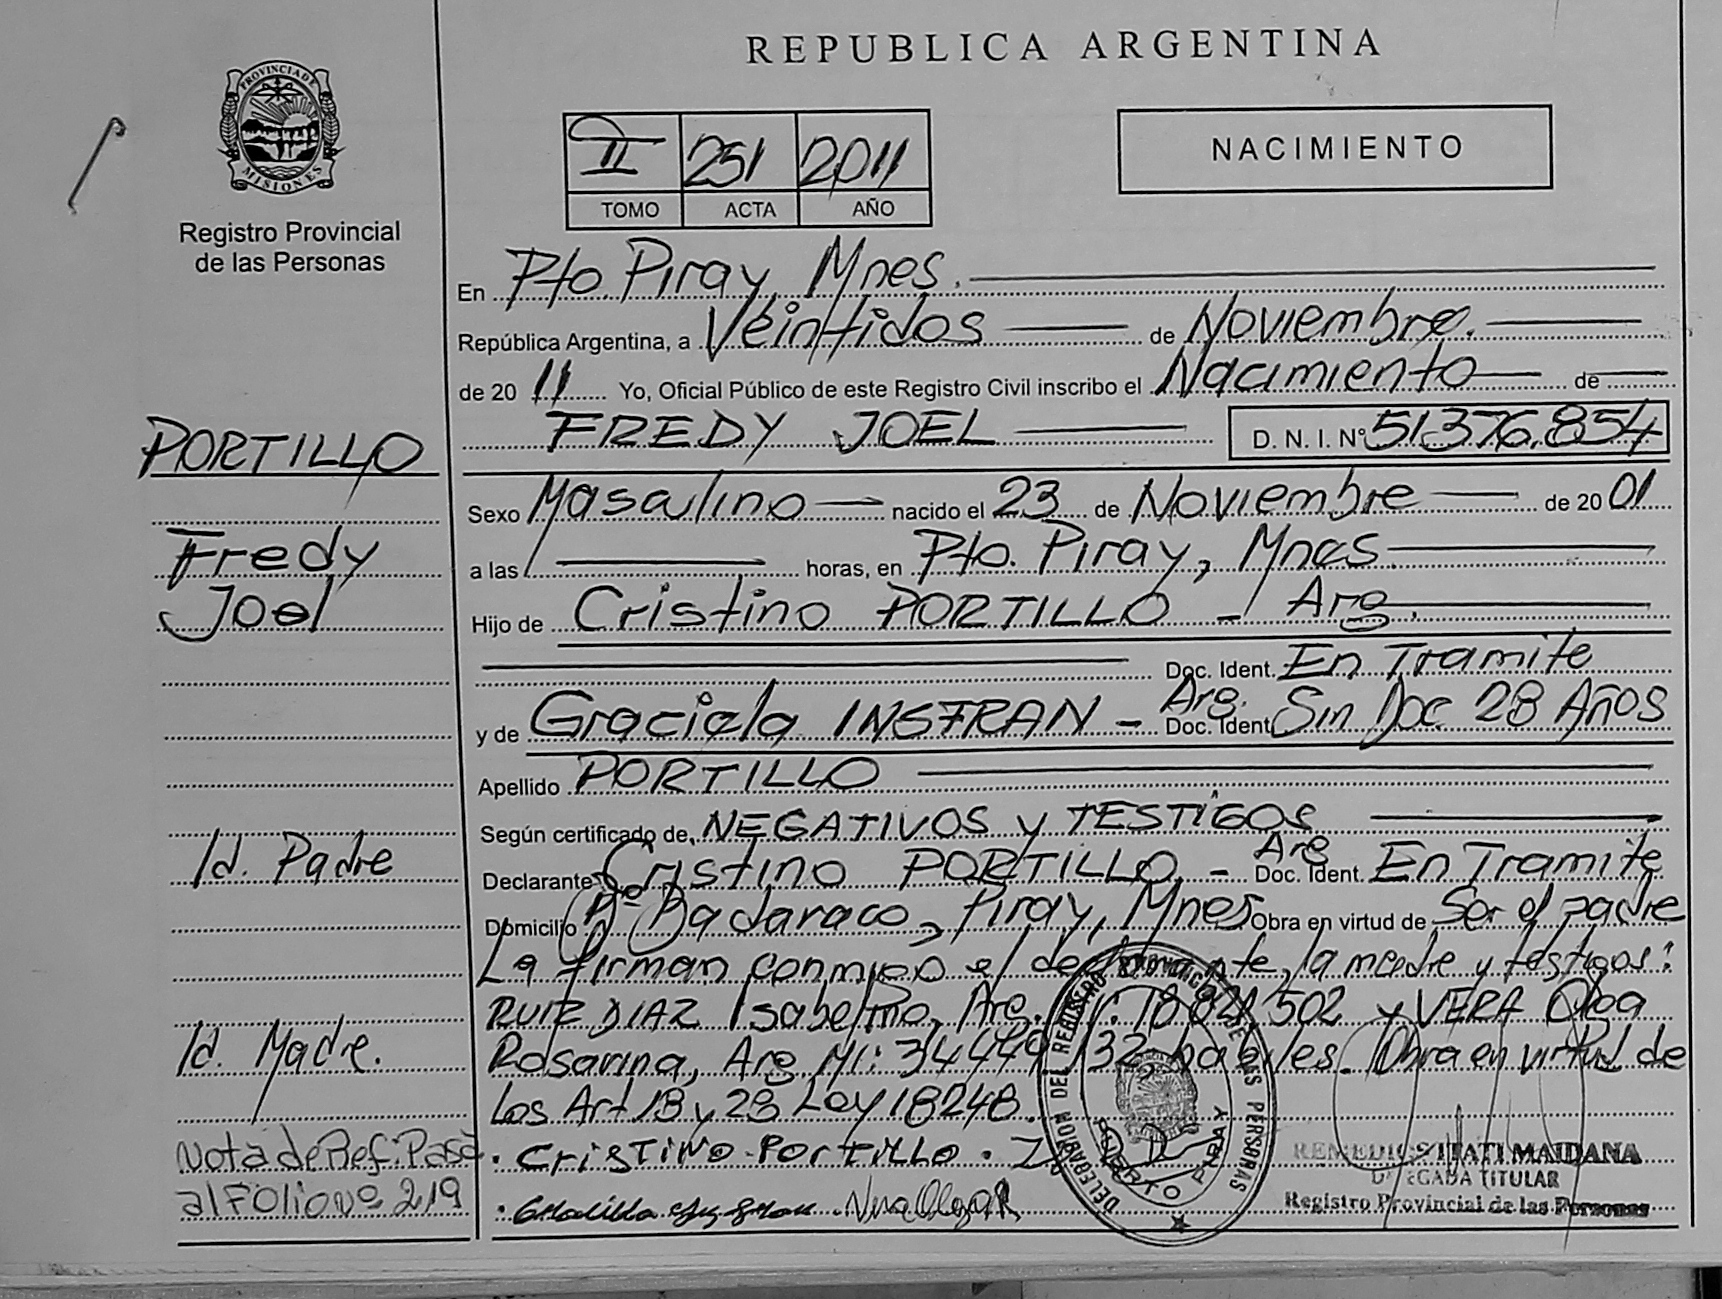 REPUBLICA ARGENTINA
PROVINCIA DE MISIONES
Registro Provincial
de las Personas
II 251 2011
TOMO ACTA AÑO
NACIMIENTO
En Pto Piray, Mnes.
República Argentina, a Veintidos de Noviembre.
de 20 11 Yo, Oficial Público de este Registro Civil inscribo el Nacimiento de
FREDY JOEL D. N. I. Nº 51.376.854
PORTILLO
Fredy
Joel
Sexo Masculino nacido el 23 de Noviembre de 20 01
a las horas, en Pto. Piray, Mnes.
Hijo de Cristino PORTILLO - Arg.
Doc. Ident. En Tramite
y de Graciela INSFRAN - Arg. Doc. Ident. Sin Doc 28 Años
Apellido PORTILLO
Según certificado de NEGATIVOS y TESTIGOS
Id. Padre
Declarante Cristino PORTILLO - Arg Doc. Ident. En Tramite
Domicilio Bº Badaraco, Piray, Mnes Obra en virtud de Ser el padre
La firman conmigo el declarante, la madre y testigos:
RUIZ DIAZ Isabelino, Arg. 502 y VERA Olga
Id. Madre.
Rosarina, Arg MI: 132 habiles. Obra en virtud de
Los Art 18 y 28 Ley 18248.
Nota de Ref: Pasa
al Folio Nº 219
CRISTINO PORTILLO
Vera Olga R
DELEGACION DEL REGISTRO PROVINCIAL DE LAS PERSONAS
PUERTO PIRAY
REMEDIOS ITATI MAIDANA
DELEGADA TITULAR
Registro Provincial de las Personas